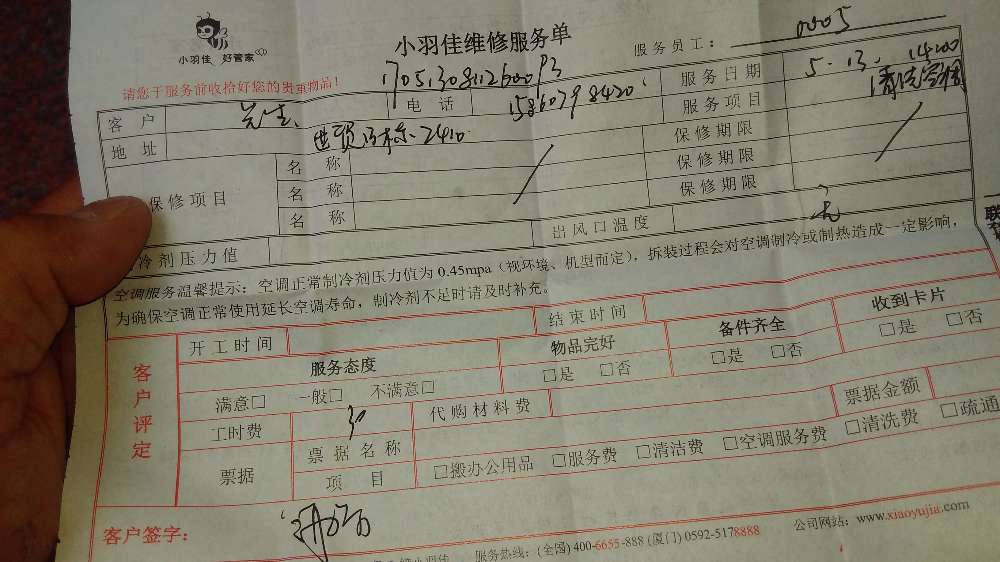 小羽佳 好管家
小羽佳维修服务单
服务员工： 0005
请您于服务前收拾好您的贵重物品！
17051308112600P3
服务日期 5.13. 14:00
客 户 电 话 15860798420 服务项目 清洗空调
地 址 2410 保修期限
保修项目 名 称 保修期限
名 称 保修期限
名 称
冷剂压力值 出风口温度 无
空调服务温馨提示：空调正常制冷剂压力值为 0.45mpa（视环境、机型而定），拆装过程会对空调制冷或制热造成一定影响，
为确保空调正常使用延长空调寿命，制冷剂不足时请及时补充。
客户评定
开工时间 结束时间
服务态度 物品完好 备件齐全 收到卡片
满意□ 一般□ 不满意□ □是 □否 □是 □否 □是 □否
工时费 30 代购材料费 票据金额
票据 票据名称
项 目 □搬办公用品 □服务费 □清洁费 □空调服务费 □清洗费 □疏通
客户签字：
小羽佳 服务热线：(全国) 400-6655-888 (厦门) 0592-5178888 公司网站：www.xiaoyujia.com